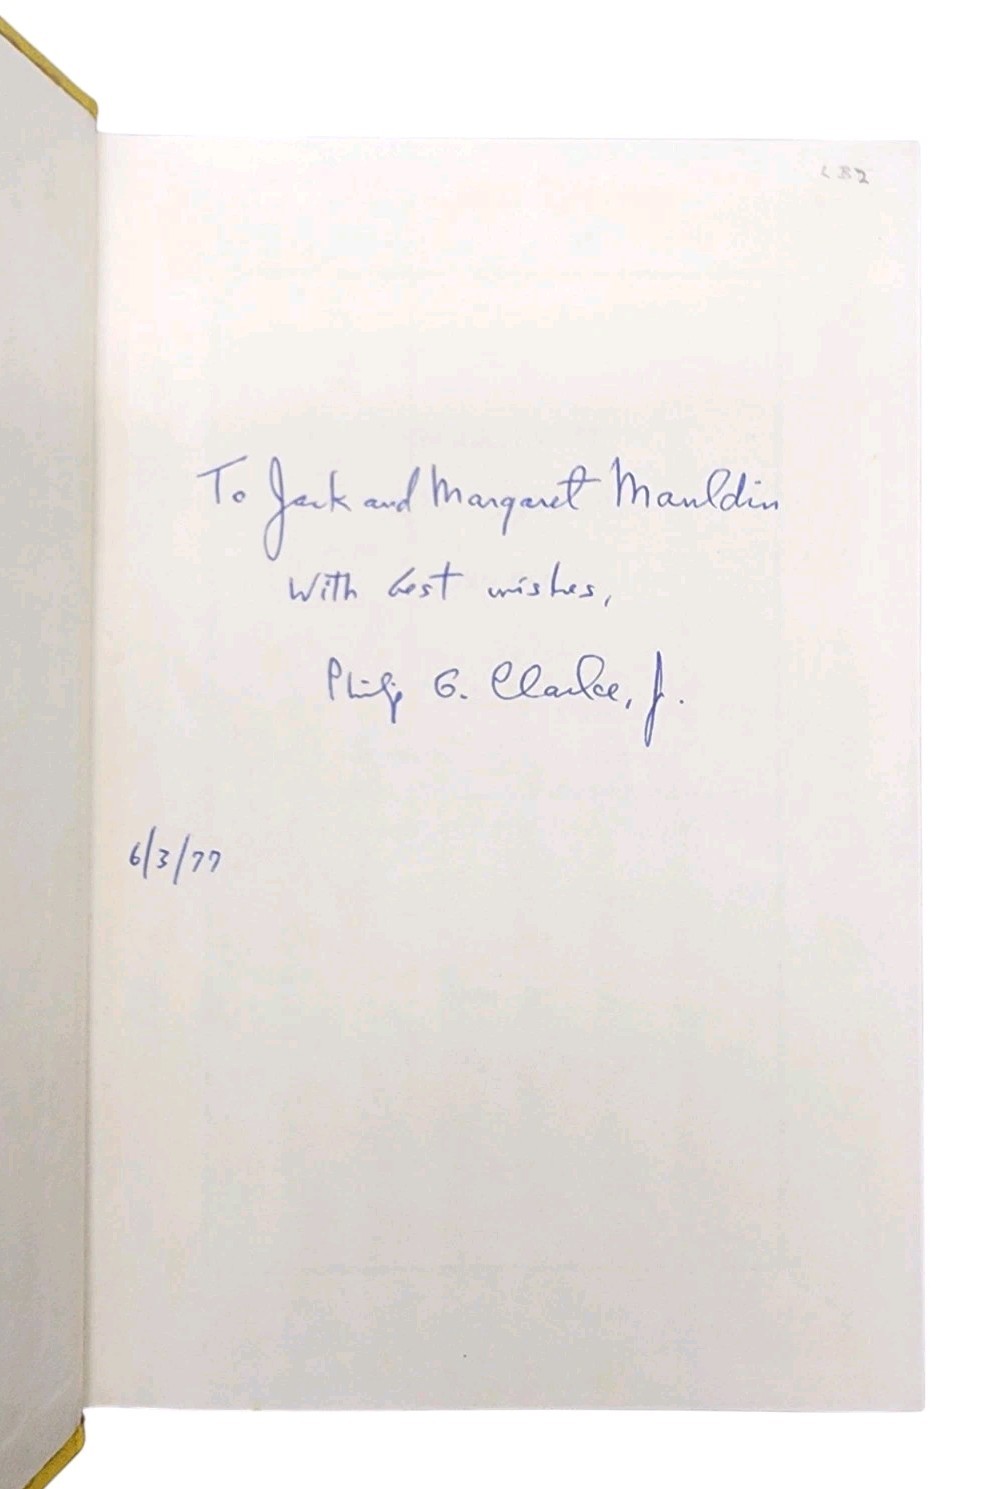 To Jack and Margaret Mauldin
With best wishes,
Philip G. Clarke, Jr.
6/3/77